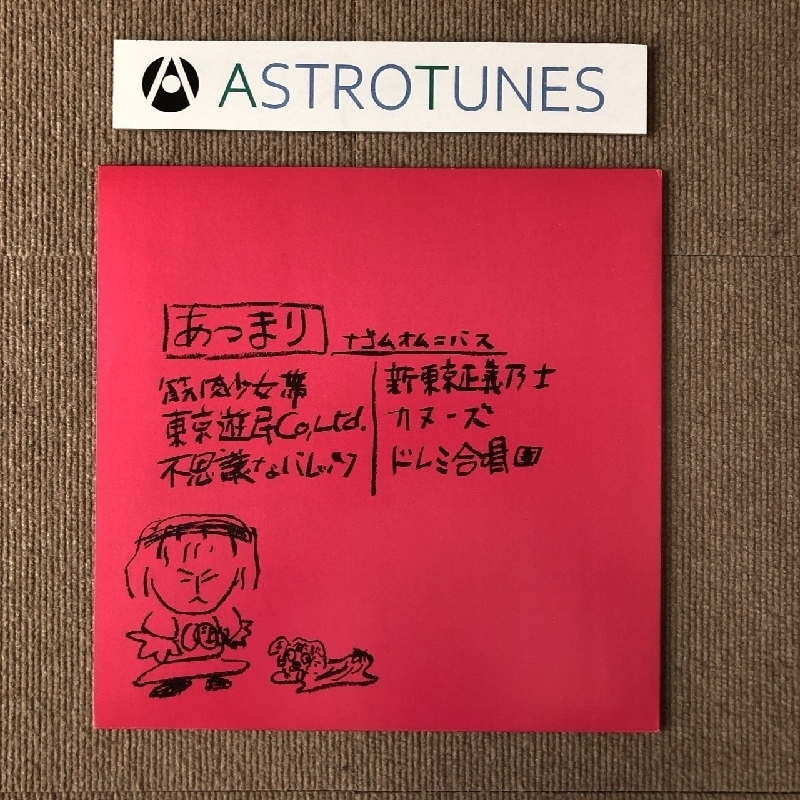 ASTROTUNES
あつまり
ナゴムオムニバス
筋肉少女帯
東京遊民Co,Ltd.
不思議なバレッツ
新東京正義乃士
カヌーズ
ドレミ合唱団